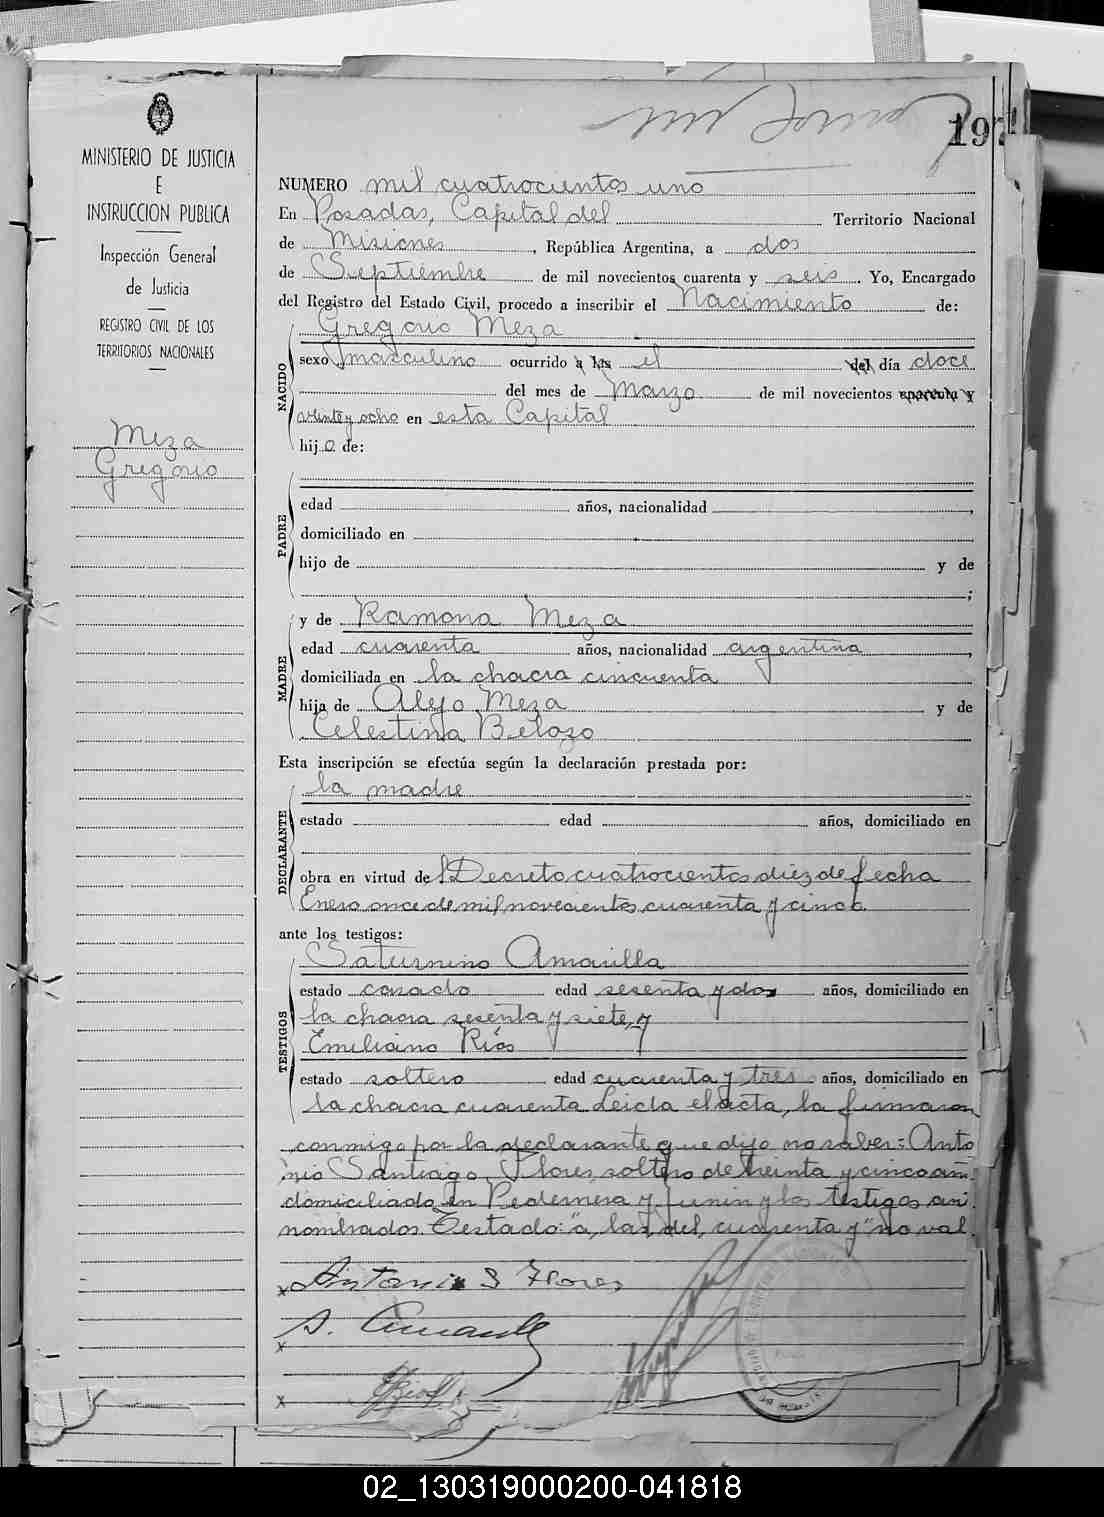 MINISTERIO DE JUSTICIA
E
INSTRUCCION PUBLICA
Inspección General
de Justicia
REGISTRO CIVIL DE LOS
TERRITORIOS NACIONALES
Meza
Gregorio
197
NUMERO mil cuatrocientos uno
En Posadas, Capital del Territorio Nacional
de Misiones, República Argentina, a dos
de Septiembre de mil novecientos cuarenta y seis. Yo, Encargado
del Registro del Estado Civil, procedo a inscribir el Nacimiento de:
NACIDO
Gregorio Meza
sexo masculino ocurrido a las el del día doce
del mes de Marzo de mil novecientos cuarenta y
veinte y ocho en esta Capital
hijo de:
PADRE
edad años, nacionalidad ,
domiciliado en
hijo de y de
;
MADRE
y de Ramona Meza
edad cuarenta años, nacionalidad argentina,
domiciliada en la chacra cincuenta
hija de Alejo Meza y de
Celestina Belozo
Esta inscripción se efectúa según la declaración prestada por:
DECLARANTE
la madre
estado edad años, domiciliado en
obra en virtud del Decreto cuatrocientos diez de fecha
Enero once de mil novecientos cuarenta y cinco.
ante los testigos:
TESTIGOS
Saturnino Amarilla
estado casado edad sesenta y dos años, domiciliado en
la chacra sesenta y siete, y
Emiliano Ríos
estado soltero edad cuarenta y tres años, domiciliado en
la chacra cuarenta Leida el acta, la firmaron
conmigo por la declarante que dijo no saber = Anto
nio Santiago Flores, soltero de treinta y cinco añ.
domiciliado en Pedernera y Junin y los testigos an.
nombrados. Testado: "a, las, del, cuarenta y" no val.
x Antonio S Flores
x S. Amarilla
x
02_130319000200-041818